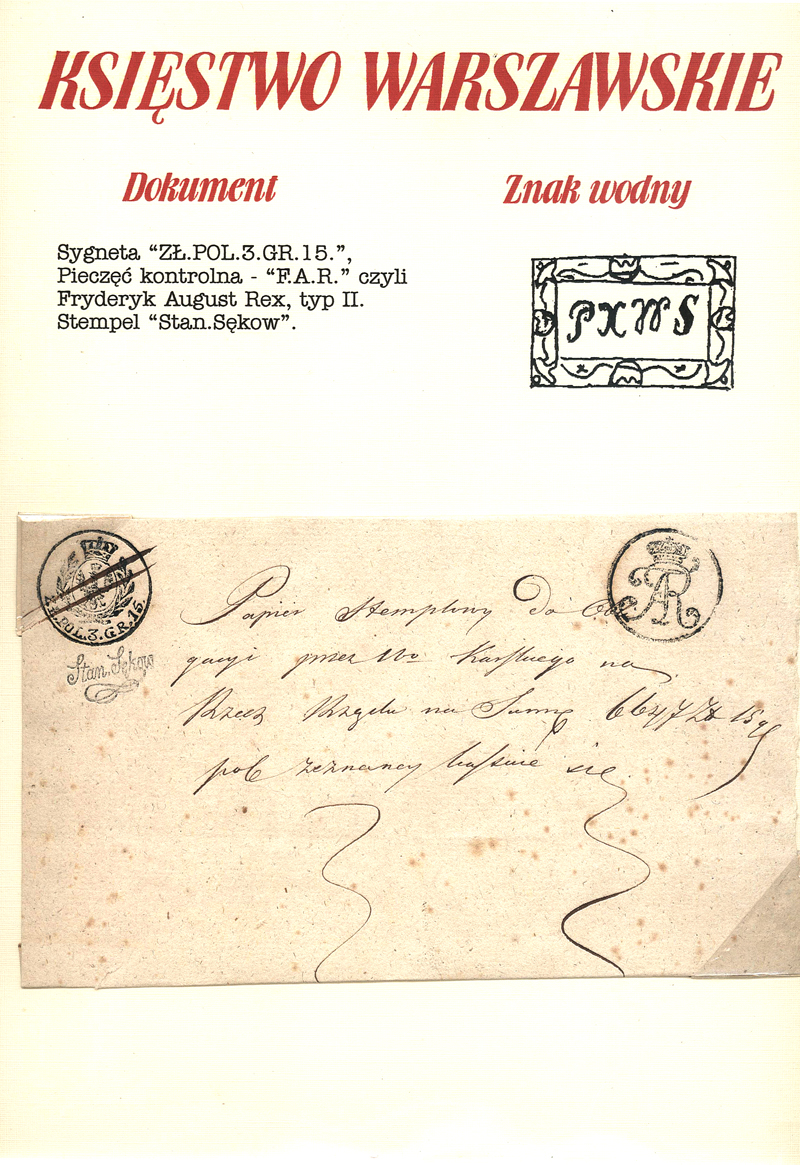 KSIĘSTWO WARSZAWSKIE
Dokument
Znak wodny
Sygneta “ZŁ.POL.3.GR.15.”,
Pieczęć kontrolna - “F.A.R.” czyli
Fryderyk August Rex, typ II.
Stempel “Stan.Sękow”.
PXWS
ZŁ.POL.3.GR.15.
AR
Stan. Sękow
Papier Stemplowy do Obli
gacyi przez Wo na
Rzecz Rządu na Summę 6647 Zł 15 gr
pol zeznaney się